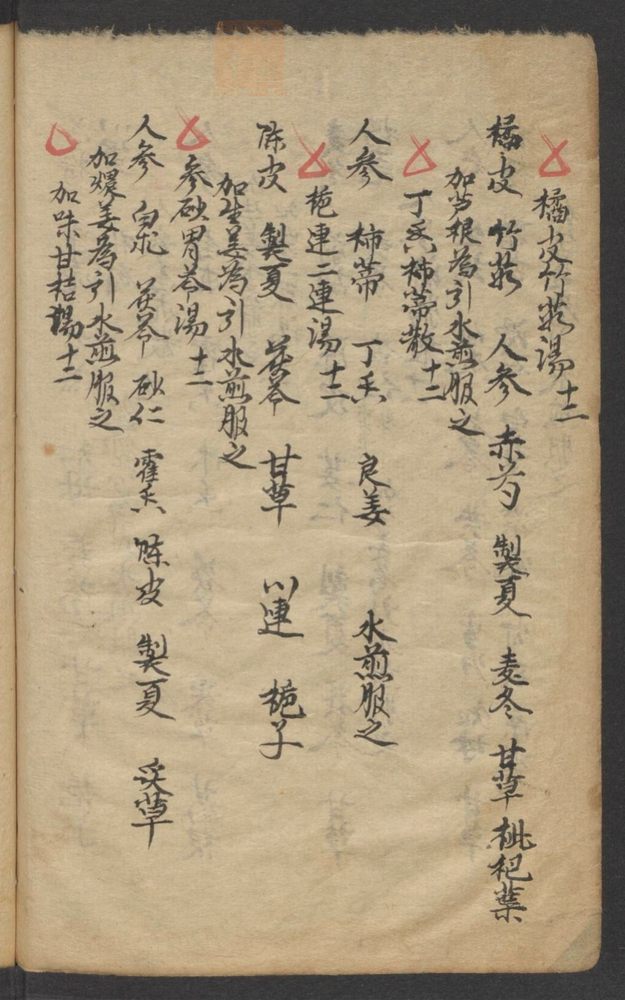 橘皮竹茹湯 十二
橘皮 竹茹 人參 赤芍 製夏 麦冬 甘草 枇杷葉
加芦根為引水煎服之
丁香柿蒂散 十二
人參 柿蒂 丁香 良姜 水煎服之
梔連二連湯 十二
陈皮 製夏 茯苓 甘草 川連 梔子
加生姜為引水煎服之
參砂胃苓湯 十二
人參 白朮 茯苓 砂仁 霍香 陈皮 製夏 炙草
加煨姜為引水煎服之
加味甘桔湯 十二